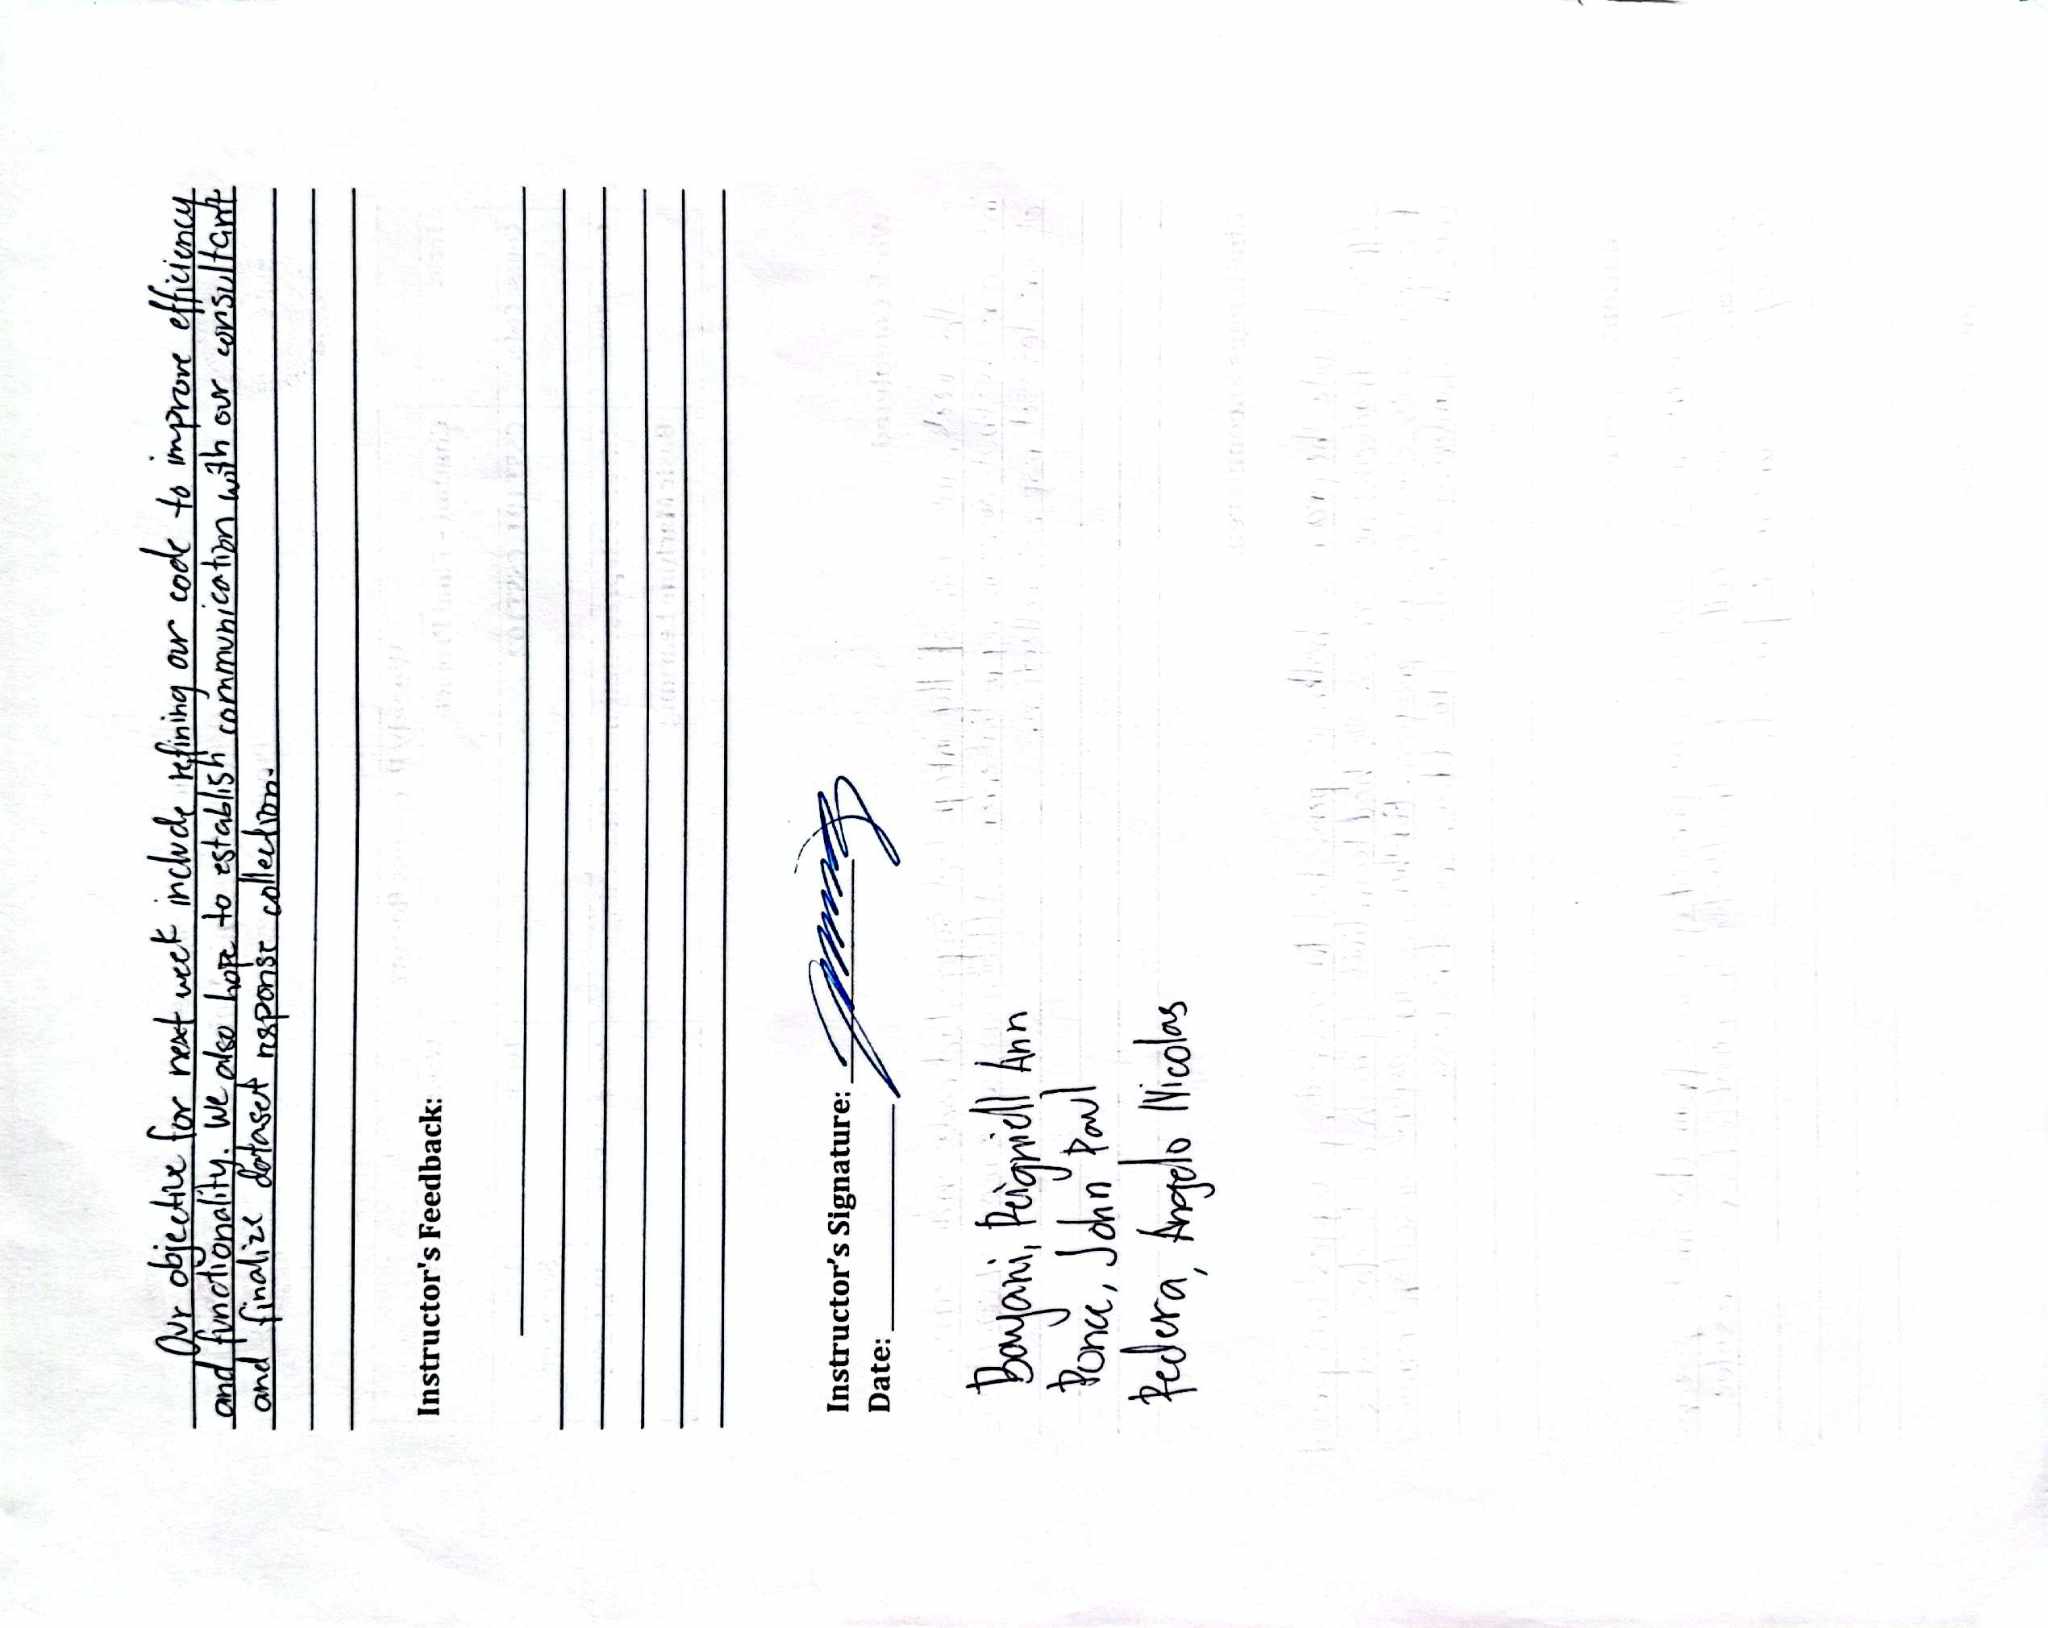 Our objective for next week include refining our code to improve efficiency
and functionality. We also hope to establish communication with our consultant
and finalize dataset response collection.
Instructor's Feedback:
Instructor's Signature:
Date:
Bayani, Reigniell Ann
Ponce, John Paul
Pedera, Angelo Nicolas